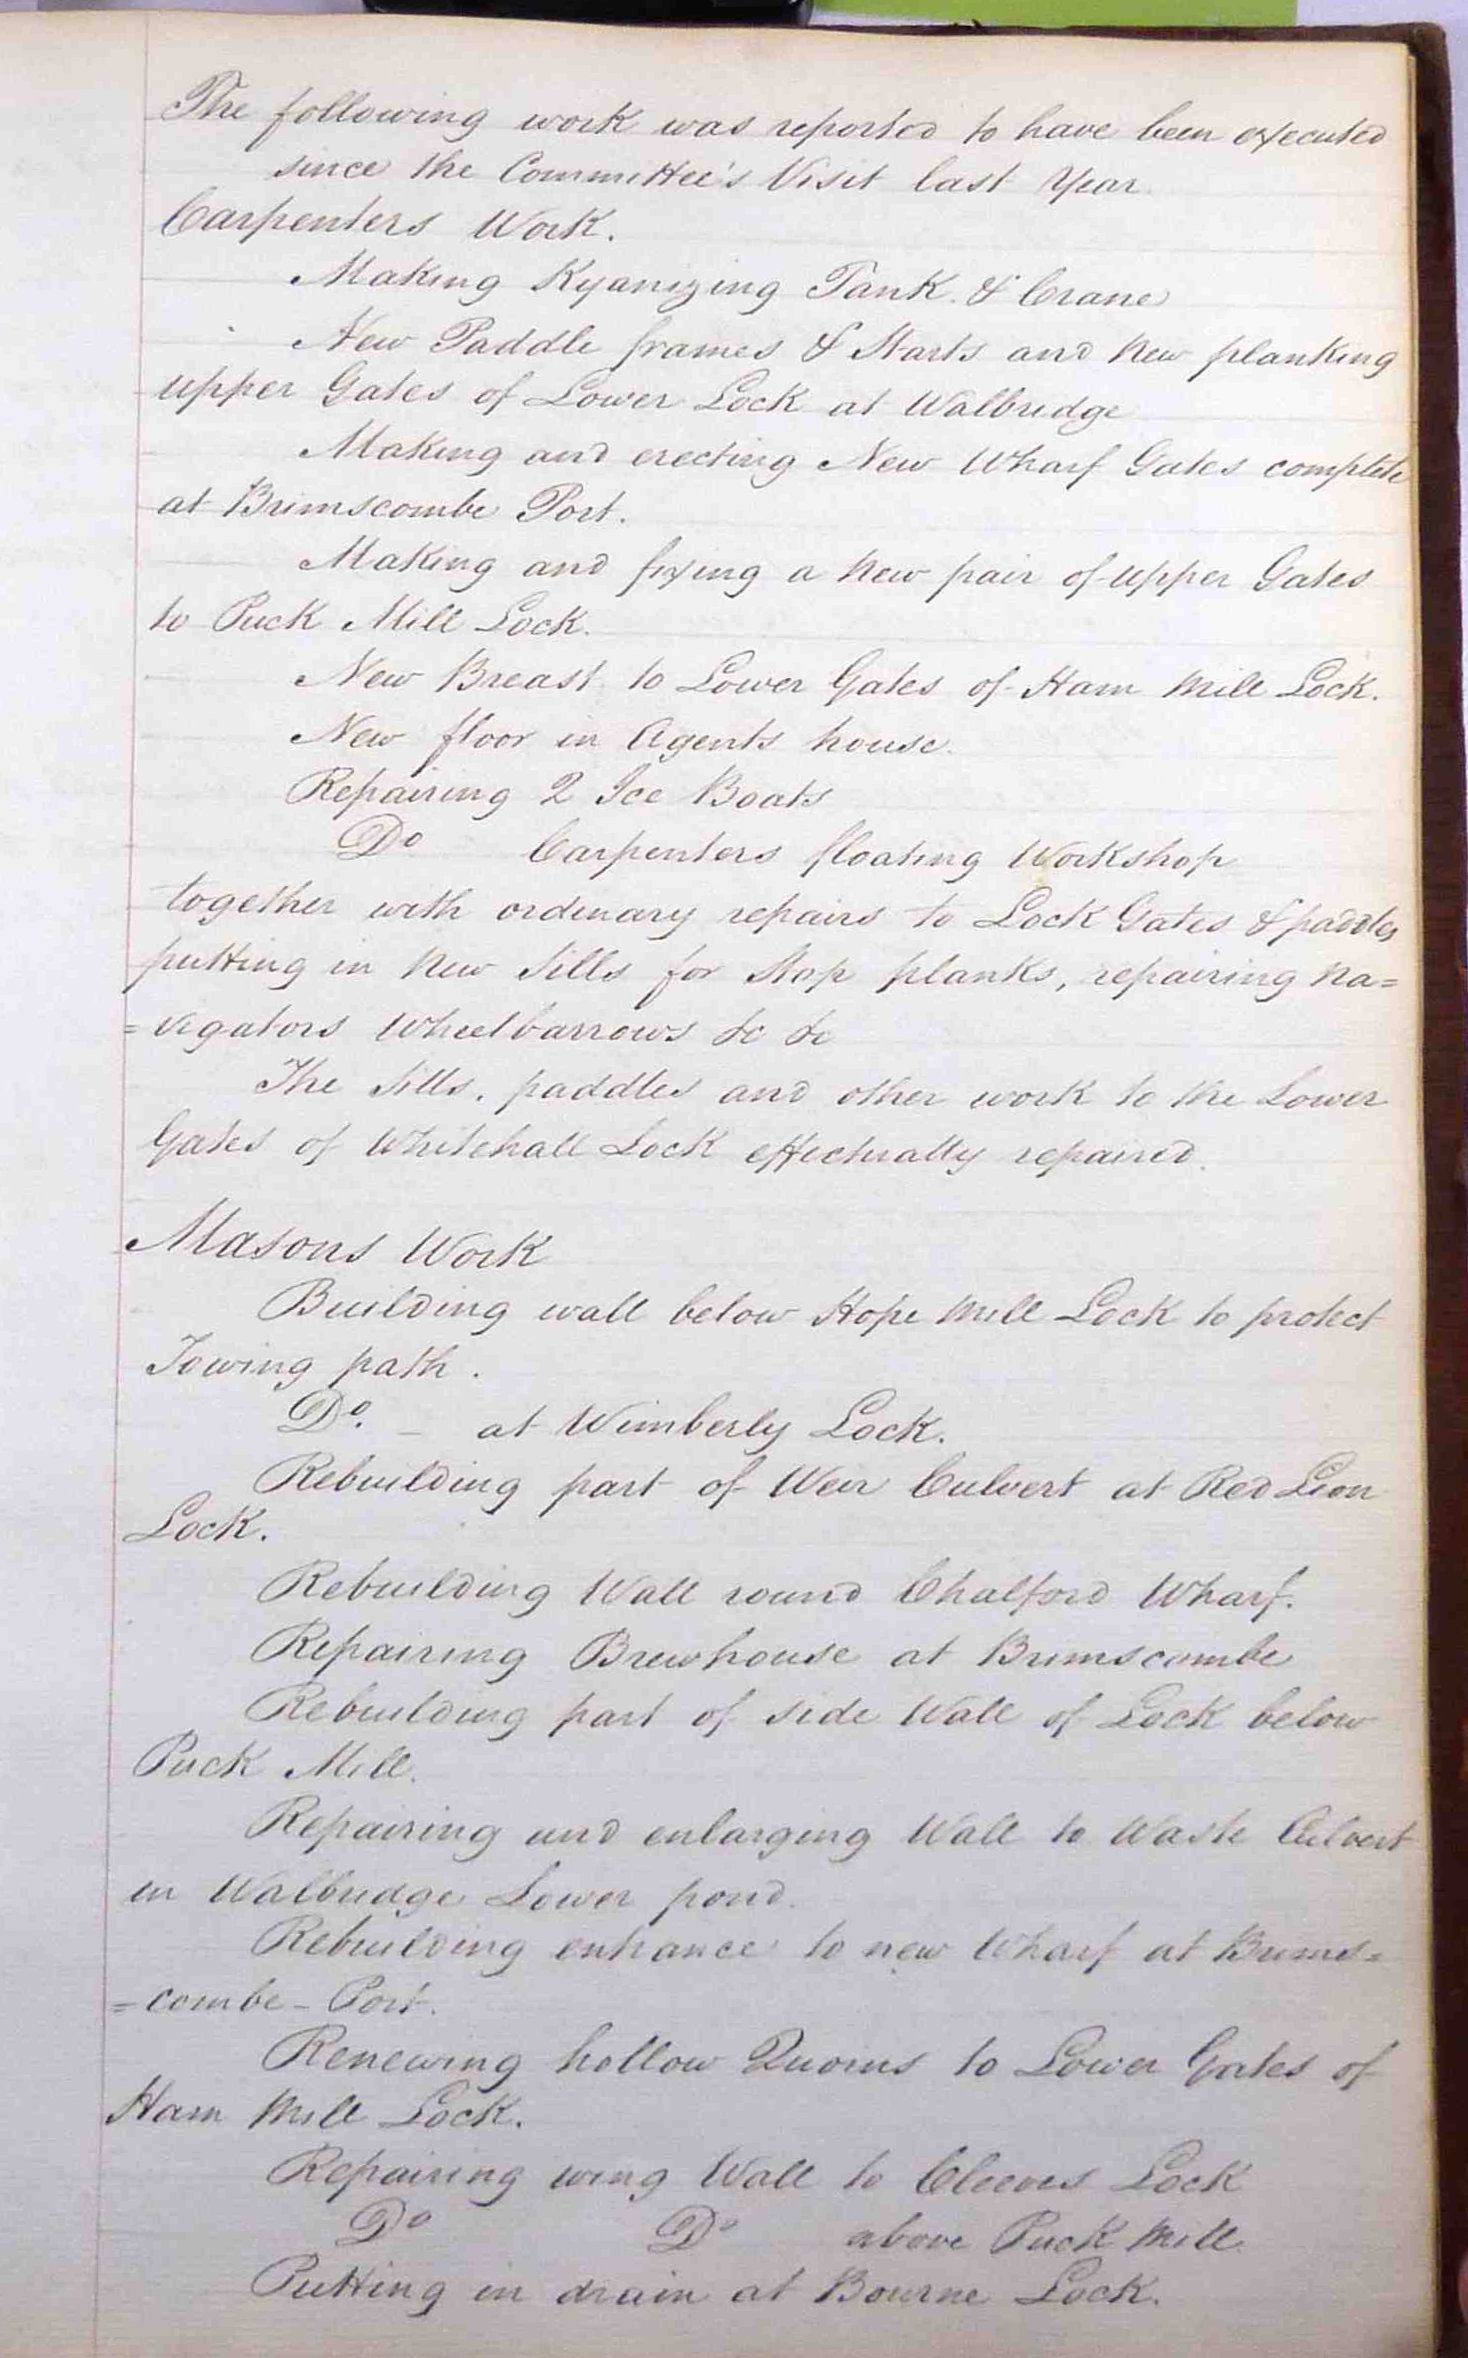 The following work was reported to have been executed
since the Committee's Visit last Year.
Carpenters Work.
Making Kyanizing Tank. & Crane
New Paddle frames & Starts and New planking
upper Gates of Lower Lock at Walbridge
Making and erecting New Wharf Gates complete
at Brimscombe Port.
Making and fixing a New pair of upper Gates
to Puck Mill Lock.
New Breast to Lower Gates of Ham Mill Lock.
New floor in Agents house.
Repairing 2 Ice Boats
Do Carpenters floating Workshop
together with ordinary repairs to Lock Gates & paddles
putting in New Sills for Stop planks, repairing Na=
=vigators Wheelbarrows &c &c
The Sills, paddles and other work to the Lower
Gates of Whitehall Lock effectually repaired.
Masons Work
Building wall below Hope Mill Lock to protect
Towing path.
Do. - at Wimberly Lock.
Rebuilding part of Weir Culvert at Red Lion
Lock.
Rebuilding Wall round Chalford Wharf.
Repairing Brewhouse at Brimscombe
Rebuilding part of side Wall of Lock below
Puck Mill.
Repairing and enlarging Wall to Waste Culvert
in Walbridge Lower pond.
Rebuilding entrance to new Wharf at Brims=
=combe - Port.
Renewing hollow Quoins to Lower Gates of
Ham Mill Lock.
Repairing wing Wall to Cleeves Lock
Do Do above Puck Mill.
Putting in drain at Bourne Lock.